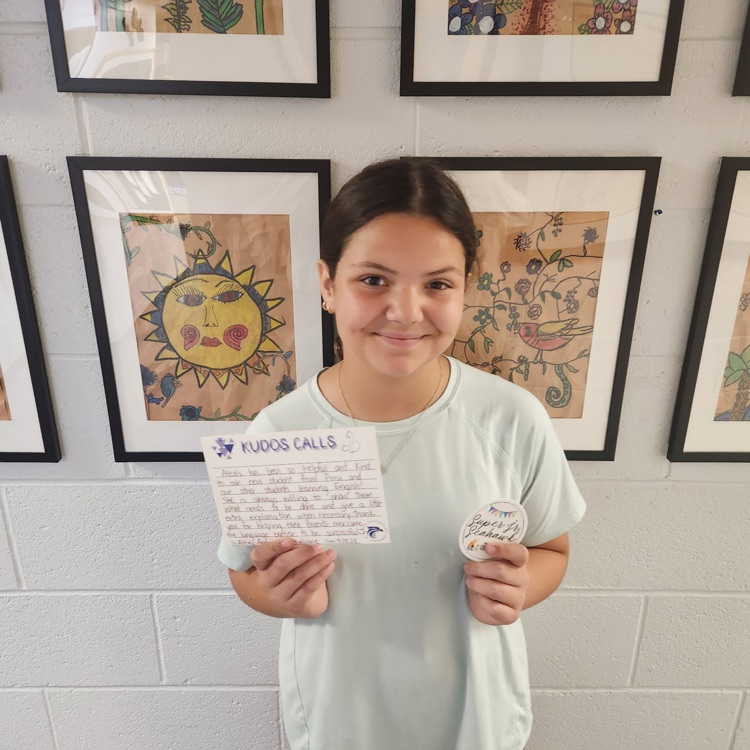 KUDOS CALLS
Alexis has been so helpful and kind
to our new student from and
our other students learning English!
She is always willing to "show" them
what needs to be done and give a little
extra explanation when necessary. Thank
you for helping these friends overcome
the language barrier to be successful!
Super Jr.
Seahawk